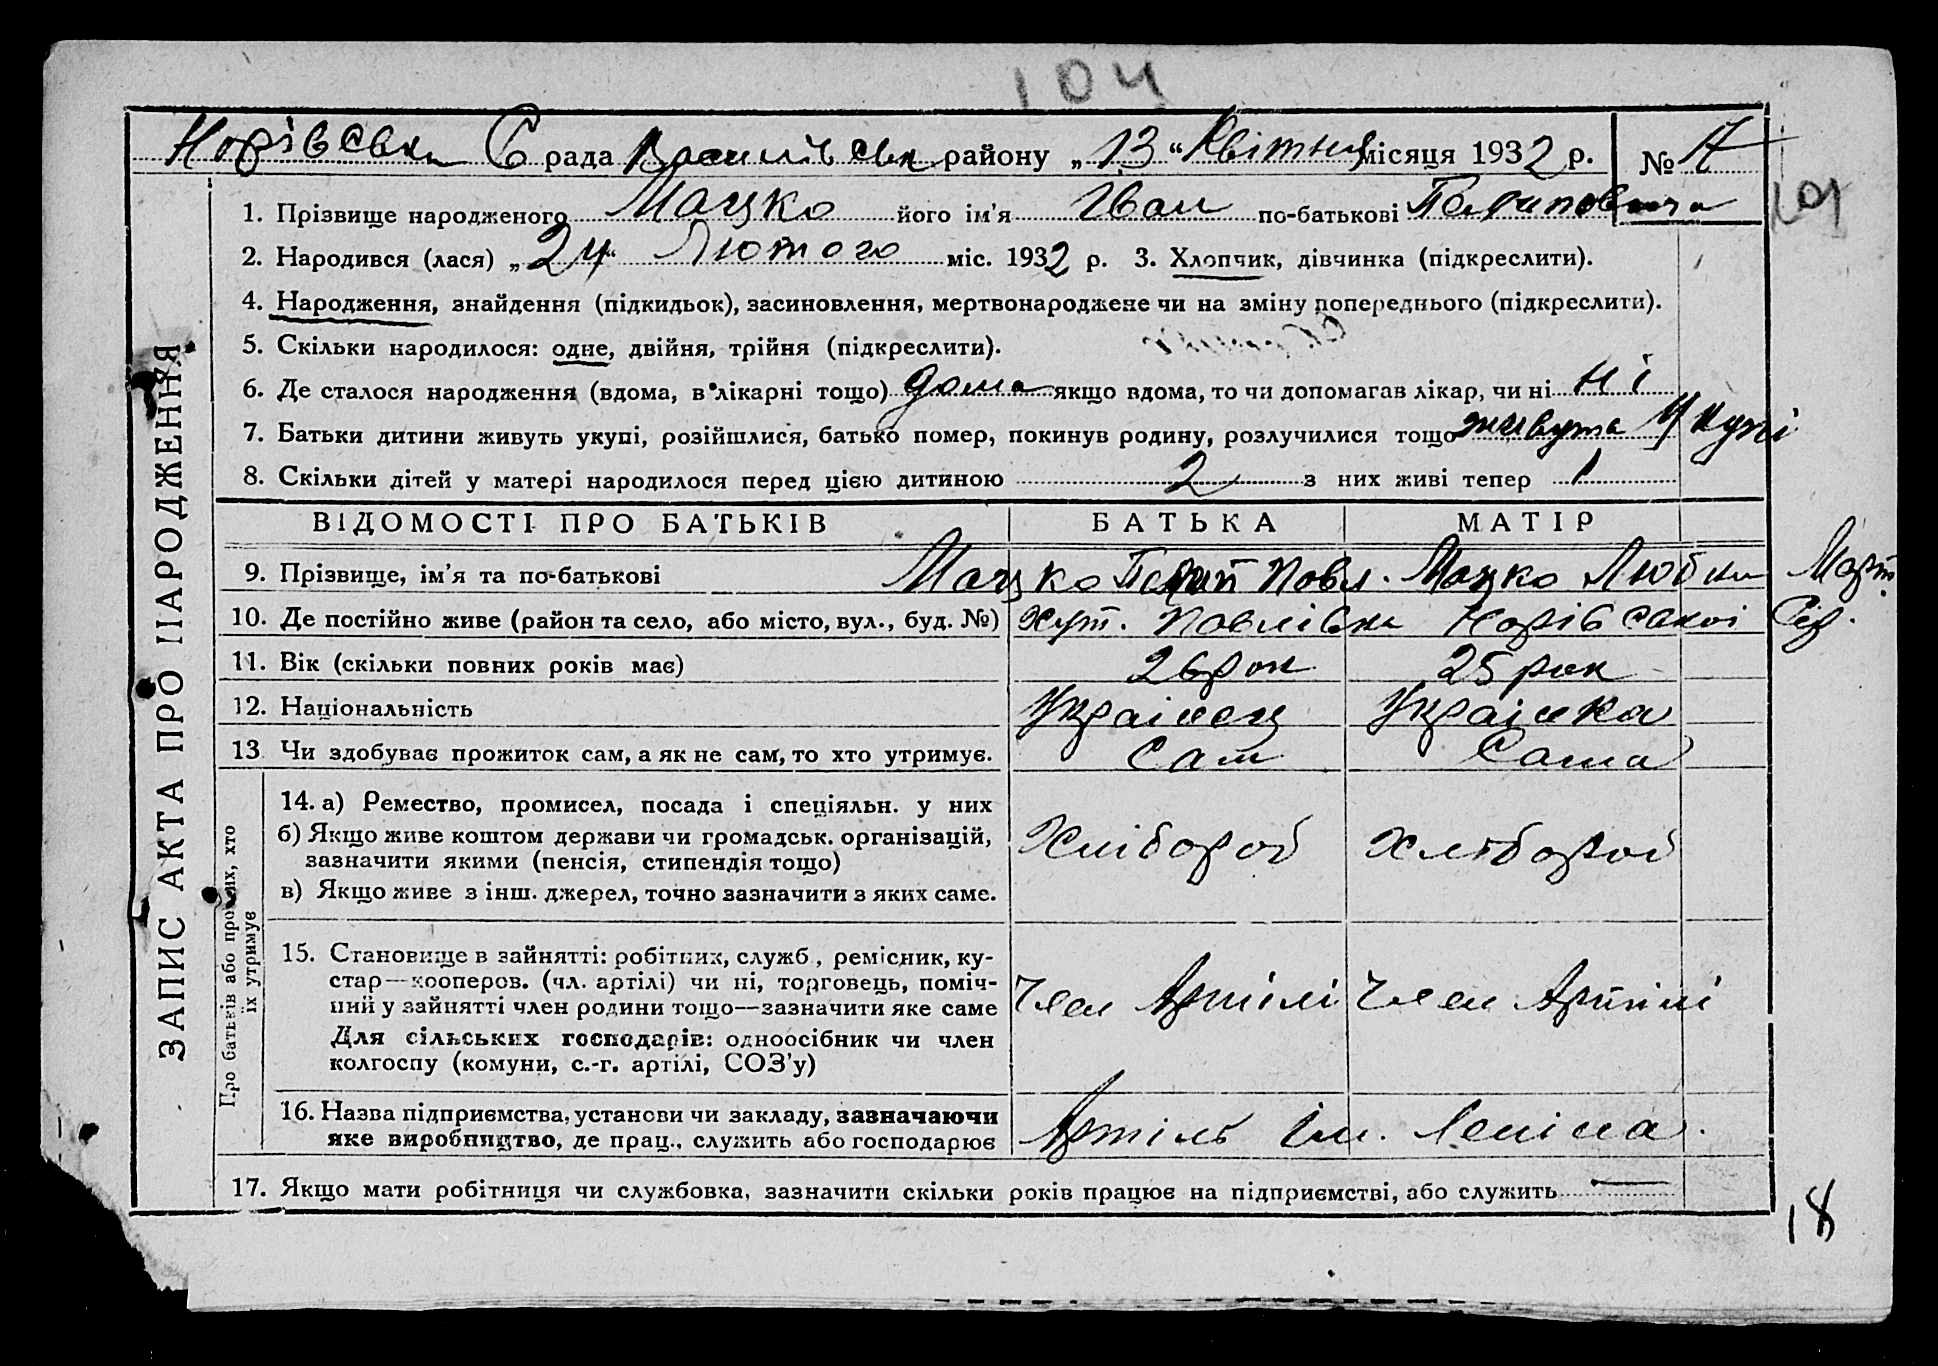 104
Норівська С рада районy „13“ Квітня місяця 1932 р. № 17
101
1. Прізвище народженого Мацко його ім'я Іван по-батькові
2. Народився (лася) „24“ Лютого міс. 1932 р. 3. Хлопчик, дівчинка (підкреслити).
4. Народження, знайдення (підкидьок), засиновлення, мертвонароджене чи на зміну попереднього (підкреслити).
5. Скільки народилося: одне, двійня, трійня (підкреслити).
6. Де сталося народження (вдома, в лікарні тощо) дома якщо вдома, то чи допомагав лікар, чи ні ні
7. Батьки дитини живуть укупі, розійшлися, батько помер, покинув родину, розлучилися тощо живуть У купі
8. Скільки дітей у матері народилося перед цією дитиною 2 з них живі тепер 1
ВІДОМОСТІ ПРО БАТЬКІВ БАТЬКА МАТІР
9. Прізвище, ім'я та по-батькові Мацко Павл. Мацко Любка Март.
10. Де постійно живе (район та село, або місто, вул., буд. №) Хут. Павлівка Норівської С/р.
11. Вік (скільки повних років має) 26 рок 25 рок
12. Національність Українец Українка
13 Чи здобуває прожиток сам, а як не сам, то хто утримує. Сам Сама
ЗАПИС АКТА ПРО НАРОДЖЕННЯ
Про батьків або про них, хто їх утримує
14. а) Ремество, промисел, посада і спеціяльн. у них
б) Якщо живе коштом держави чи громадськ. організацій,
зазначити якими (пенсія, стипендія тощо)
Хлібороб Хлібороб
в) Якщо живе з інш. джерел, точно зазначити з яких саме.
15. Становище в зайнятті: робітник, служб., ремісник, ку-
стар—кооперов. (чл. артілі) чи ні, торговець, поміч-
ний у зайнятті член родини тощо—зазначити яке саме
Член Артілі Член Артілі
Для сільських господарів: одноосібник чи член
колгоспу (комуни, с.-г. артілі, СОЗ'у)
16. Назва підприємства, установи чи закладу, зазначаючи
яке виробництво, де прац., служить або господарює
Артіль ім. Леніна.
17. Якщо мати робітниця чи службовка, зазначити скільки років працює на підприємстві, або служить —
18